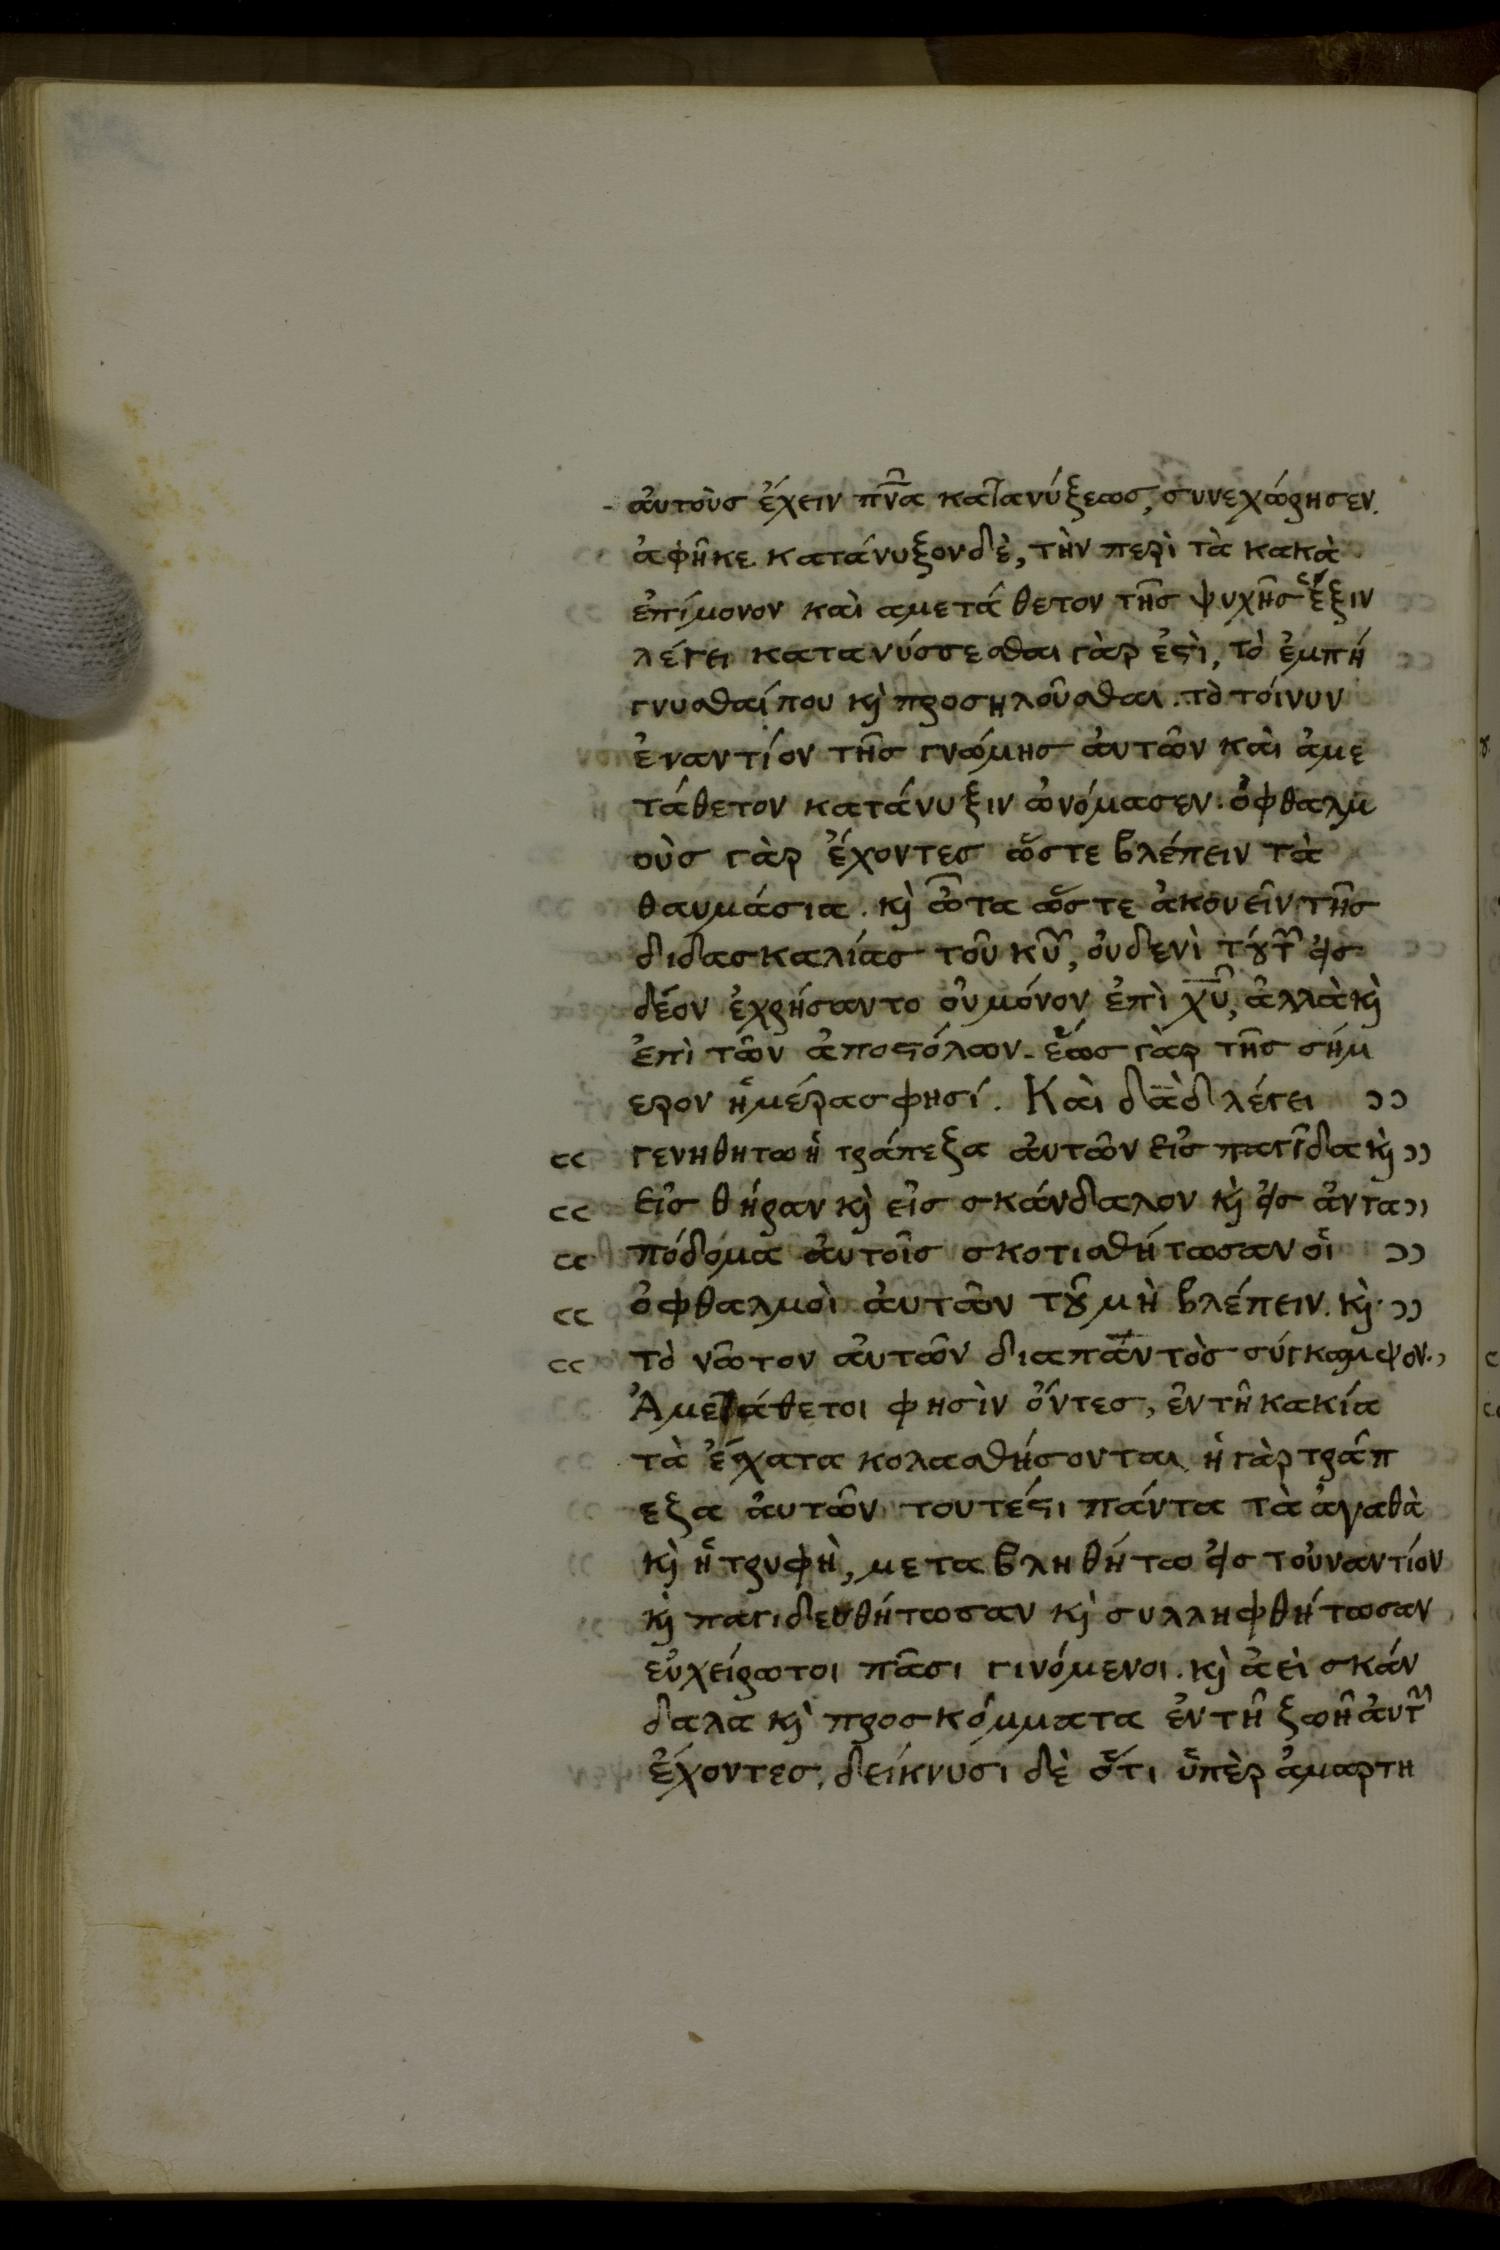 ἀυτοὺς ἔχειν πν̅α κατανύξεως, συνεχώρησεν.
ἀφῆκε. κατάνυξον δὲ, τὴν περὶ τὰ κακὰ
ἐπίμονον καὶ αμετάθετον τῆς ψυχῆς ἕξιν
λέγει κατανύσσεσθαι γὰρ ἐϛὶ, τὸ ἐμπή
γνυσθαί που κ̀ προσηλοῦσθαι. τὸ τοίνυν
ἐναντίον τῆς γνώμης ἀυτῶν καὶ ἀμε
τάθετον κατάνυξιν ὠνόμασεν. ὀφθαλμ
οὺς γὰρ ἔχοντες ὥστε βλέπειν τὰ
θαυμάσια. κ̀ ὦτα ὥστε ἀκουεῖν τῆς
διδασκαλίας τοῦ κυ̅, ὀυδενὶ τȣ́τ εἰς
δέον ἐχρήσαντο οὐ μόνον ἐπὶ χυ̅, ἀλλὰ κ̀
ἐπὶ τῶν ἀποϛόλων. ἕως γὰρ τῆς σήμ
ερον ἡμέρας φησί. Καὶ δᾱδ λέγει ››
‹‹ γενηθητω ἡ τράπεζα ἀυτῶν εἰς παγῖδα κ̀ ››
‹‹ εἰς θήραν κ̀ εἰς σκάνδαλον κ̀ εἰς ἀντα ››
‹‹ πόδομα ἀυτοῖς σκοτισθήτωσαν οἱ ››
‹‹ ὀφθαλμοὶ ἀυτῶν τȣ͂ μὴ βλέπειν. κ̀ ››
‹‹ τὸ νῶτον αὐτῶν διαπαντὸς σύγκαμψον. ›
Ἀμετάθετοι φησὶν ὄντες, ἐν τῆ κακία
τὰ ἔσχατα κολασθήσονται. ἡ γὰρ τράπ
εζα ἀυτῶν τουτέϛι πάντα τὰ ἀγαθὰ
κ̀ ἡ τρυφὴ, μεταβληθήτω εἰς τοὐναντίον
κ̀ παγιδευθήτωσαν κ̀ συλληφθήτωσαν
εὐχείρωτοι πᾶσι γινόμενοι. κ̀ ἀεὶ σκάν
δαλα κ̀ προσκόμματα ἐν τῆ ζωῆ ἀυτ
ἔχοντες, δείκνυσι δὲ ὅτι ὑπὲρ ἁμαρτη